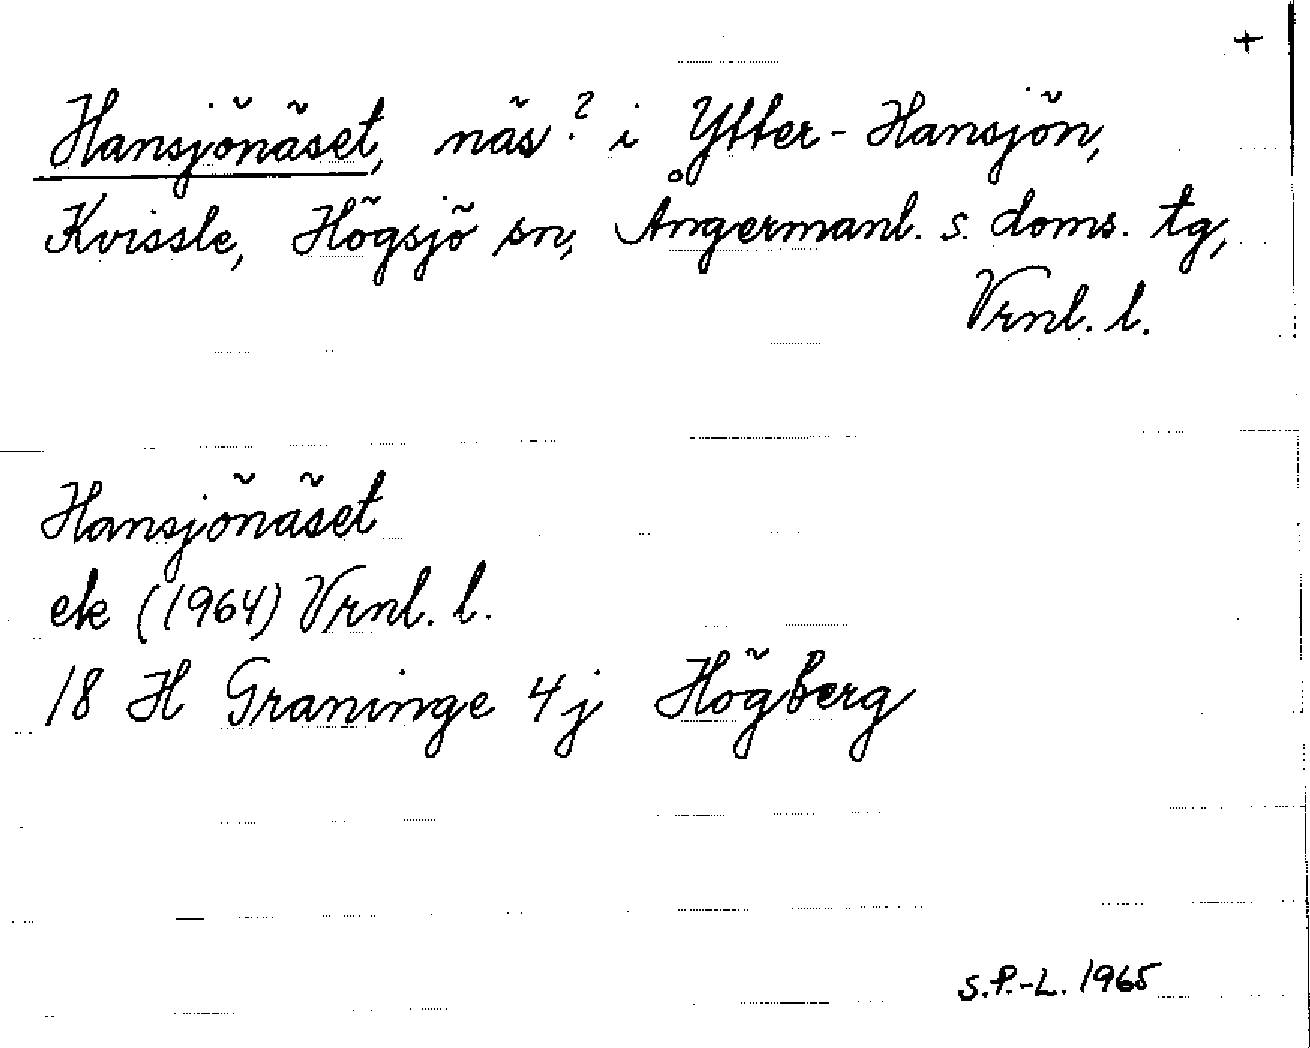 +
Hansjönäset, näs? i Ytter-Hansjön,
Kvissle, Högsjö sn, Ångermanl. s. doms. tg,
Vrnl. l.
Hansjönäset
ek (1964) Vrnl. l.
18 H Graninge 4j Högberg
S.P.-L. 1965